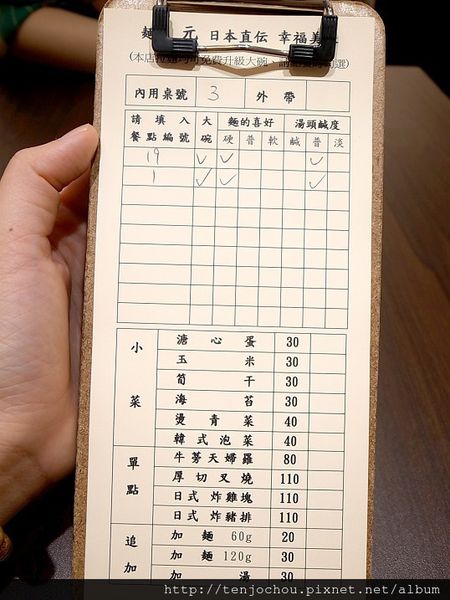 麵 元 日本直伝 幸福美
內用桌號 3 外帶
請填入餐點編號 大碗 麵的喜好 湯頭鹹度
硬 普 軟 鹹 普 淡
19 ✓ ✓ ✓
1 ✓ ✓ ✓
小菜
溏心蛋 30
玉米 30
筍干 30
海苔 30
燙青菜 40
韓式泡菜 40
單點
牛蒡天婦羅 80
厚切叉燒 110
日式 炸雞塊 110
日式 炸豬排 110
追加
加麵 60g 20
加麵 120g 30
加湯 30
http://tenjochou.pixnet.net/album